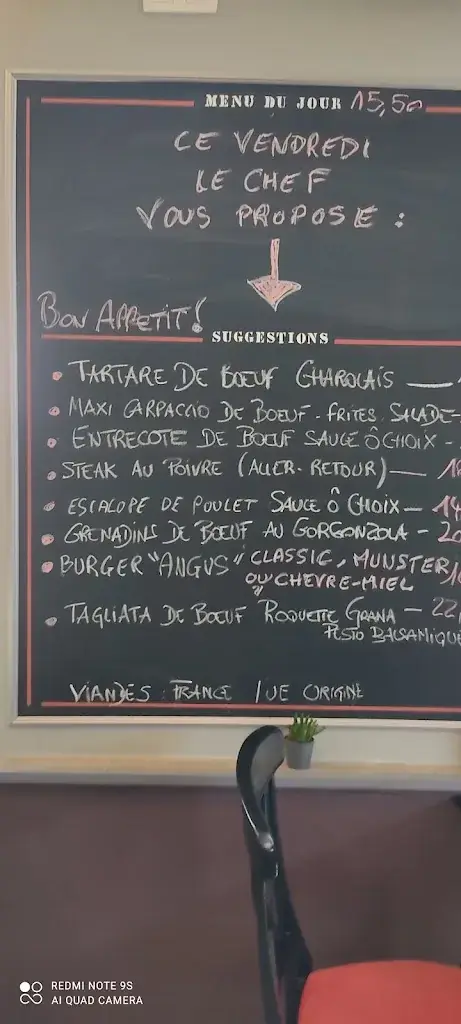 MENU DU JOUR 15,50
CE VENDREDI
LE CHEF
VOUS PROPOSE :
BON APPETIT !
SUGGESTIONS
• TARTARE DE BOEUF CHAROLAIS —
• MAXI CARPACCIO DE BOEUF - FRITES SALADE -
• ENTRECOTE DE BOEUF SAUCE Ô CHOIX -
• STEAK AU POIVRE (ALLER-RETOUR) —
• ESCALOPE DE POULET SAUCE Ô CHOIX — 14
• GRENADINS DE BOEUF AU GORGONZOLA - 20
• BURGER "ANGUS" CLASSIC, MUNSTER
OU CHEVRE-MIEL
• TAGLIATA DE BOEUF ROQUETTE GRANA — 22,
PESTO BALSAMIQUE
VIANDES FRANCE / UE ORIGINE
REDMI NOTE 9S
AI QUAD CAMERA